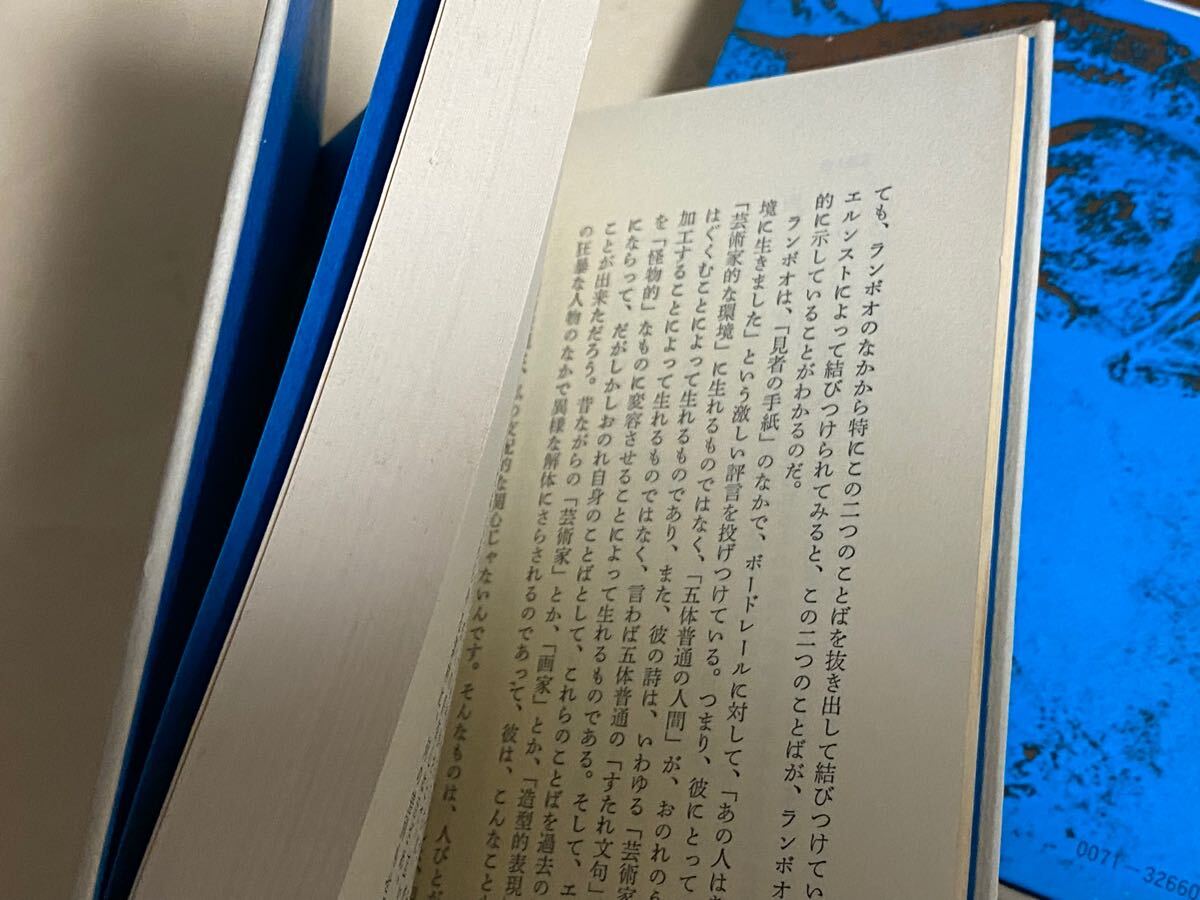 ても、ランボオのなかから特にこの二つのことばを抜き出して結びつけてい
エルンストによって結びつけられてみると、この二つのことばが、ランボオ
的に示していることがわかるのだ。
ランボオは、「見者の手紙」のなかで、ボードレールに対して、「あの人は
境に生きました」という激しい評言を投げつけている。つまり、彼にとって
「芸術家的な環境」に生れるものではなく、「五体普通の人間」が、おのれの
はぐくむことによって生れるものであり、また、彼の詩は、いわゆる「芸術家
加工することによって生れるものではなく、言わば五体普通の「すたれ文句」
を「怪物的」なものに変容させることによって生れるものである。そして、エ
にならって、だがしかしおのれ自身のことばとして、これらのことばを過去の
ことが出来ただろう。昔ながらの「芸術家」とか、「画家」とか、「造型的表現
の狂暴な人物のなかで異様な解体にさらされるのであって、彼は、こんなこと
私の支配的な関心じゃないんです。そんなものは、人びとが
0071-32660